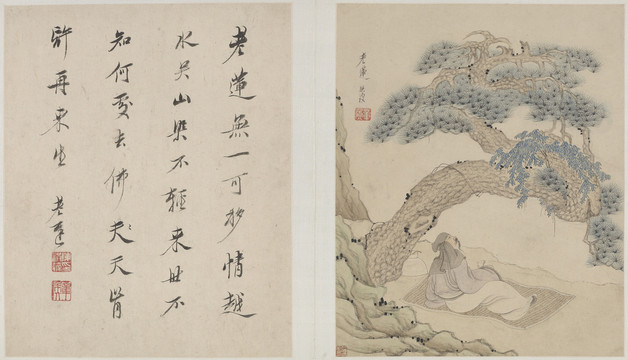 老蓮無一可移情越
水吳山染不輕來世不
知何處去佛夫天肯
許再來生 老蓮
老蓮